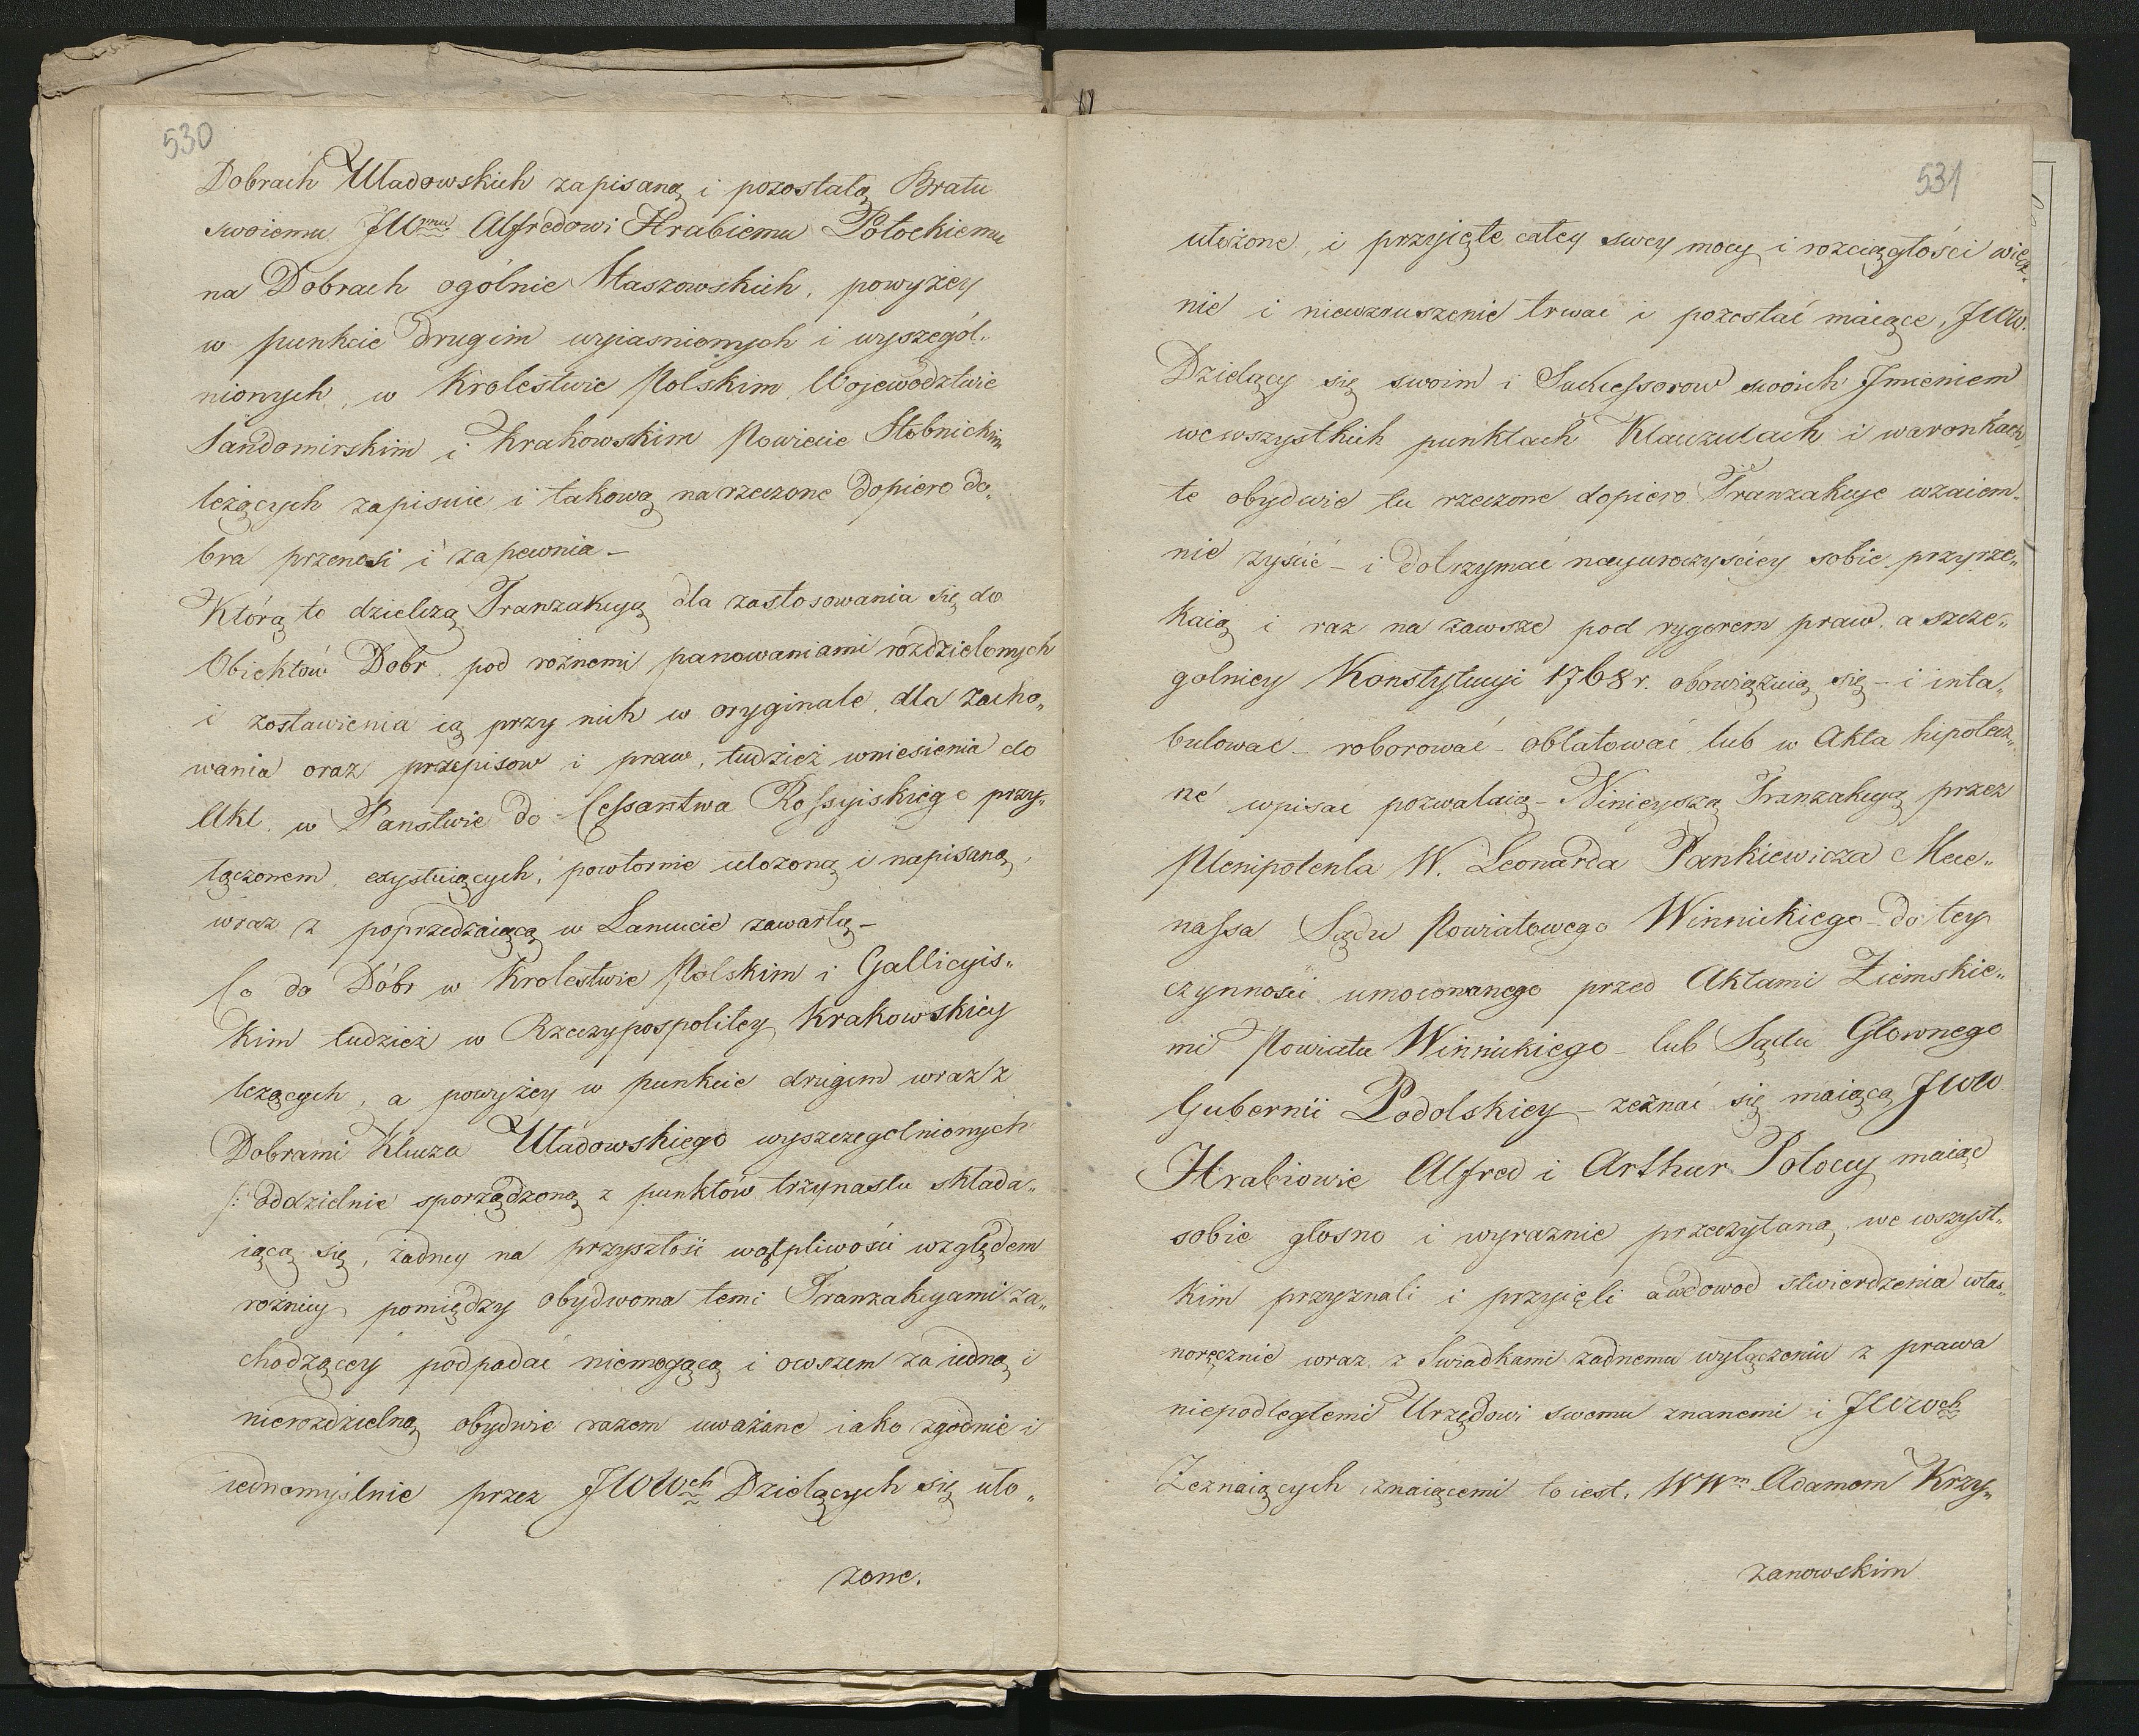 530
Dobrach Uładowskich zapisaną i pozostałą Bratu
swoiemu JWmu Alfredowi Hrabiemu Potockiemu
na Dobrach ogólnie Staszowskich, powyżey
w punkcie drugim wyiasnionych i wyszegól„
nionych, w Krolestwie Polskim Wojewodztwie
Sandomirskim i Krakowskim Powiecie Stobnickim
leżących zapisuie i takową na rzeczone dopiero do„
bra przenosi i zapewnia –
Którą to dzielczą Tranzakcyą dla zastosowania się do
Obiektów Dobr pod rożnemi panowaniami rozdzielonych
i zostawienia ią przy nich w oryginale, dla zacho„
wania oraz przepisow i praw, tudzież wniesienia do
Akt w Panstwie do Cessarstwa Rossyiskiego przy„
łączonem, exystuiących, powtornie ułożoną i napisaną,
wraz z poprzedzaiącą w Lancucie zawartą –
Co do Dóbr w Krolestwie Polskim i Gallicyis„
kim tudzież w Rzeczypospolitey Krakowskiey
leżących, a powyżey w punkcie drugim wraz z
Dobrami Klucza Uładowskiego wyszczegolnionych
/: oddzielnie sporządzoną z punktów trzynastu składa„
iącą się, żadney na przyszłość wątpliwości względem
rożnicy pomiędzy obydwoma temi Tranzakcyami za„
chodzącey podpadać niemogącą i owszem za iedną i
nierozdzielną obydwie razem uważane iako zgodnie i
iednomyślnie przez JWWch Dzielących się uło„
żone.
531
ułożone, i przyięte całey swey mocy i rozciągłości wiecz„
nie i niewzruszenie trwać i pozostać maiące, JWW.
Dzielący się swoim i Sukcessorow swoich Jmieniem
we wszystkich punktach Klauzulach i warunkach
te obydwie tu rzeczone dopiero Tranzakcye wzaiem„
nie zyścić – i dotrzymać nayuroczyściey sobie przyrze„
kaią i raz na zawsze pod rygorem praw, a szcze„
golniey Konstytucyi 1768 r. obowiązuią się – i inta„
bulować – roborować – oblatować lub w Akta hipotecz„
ne wpisać pozwalaią – Ninieyszą Tranzakcyą przez
Plenipotenta W. Leonarda Pankiewicza Mece„
nassa Sądu Powiatowego Winnickiego do tey
czynności umocowanego przed Aktami Ziemskie„
mi Powiatu Winnickiego – lub Sądu Głownego
Gubernii Podolskiey – zeznać się maiącą JWW
Hrabiowie Alfred i Arthur Potoccy maiąc
sobie głosno i wyraznie przeczytaną, we wszyst„
kim przyznali i przyięli a w dowod stwierdzenia włas„
noręcznie wraz z Swiadkami żadnemu wyłączeniu z prawa
niepodległemi Urzędowi swemu znanemi i JWWch
Zeznaiących znaiącemi to iest, WWm Adamem Krzy„
żanowskim